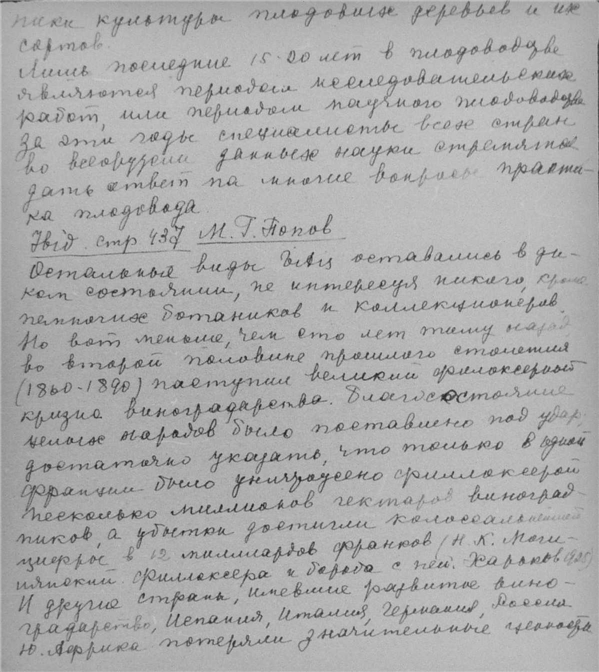 ники культуры плодовых деревьев и их
сортов.
Лишь последние 15-20 лет в плодоводстве
являются периодом исследовательских
работ, или периодом научного плодоводства
За эти годы специалисты всех стран
во всеоружии данных науки стремятся
дать ответ на многие вопросы практи-
ка плодовода.
Ibid. стр 437 М. Г. Попов
Остальные виды оставались в ди-
ком состоянии, не интересуя никого, кроме
немногих ботаников и коллекционеров.
Но вот меньше, чем сто лет тому назад,
во второй половине прошлого столетия
(1860-1890) наступил великий филоксерный
кризис виноградарства. Благосостояние
целых народов было поставлено под удар,
достаточно указать, что только в одной
Франции было уничтожено филлоксерой
несколько миллионов гектаров виноград-
ников а убытки достигли колоссальнейшей
цифры в 12 миллиардов франков (Н. К. Моги-
лянский. Филлоксера и борьба с ней. Харьков 905)
И другие страны, имевшие развитое вино-
градарство, Испания, Италия, Германия, Россия
Ю. Африка потеряли значительные ценности